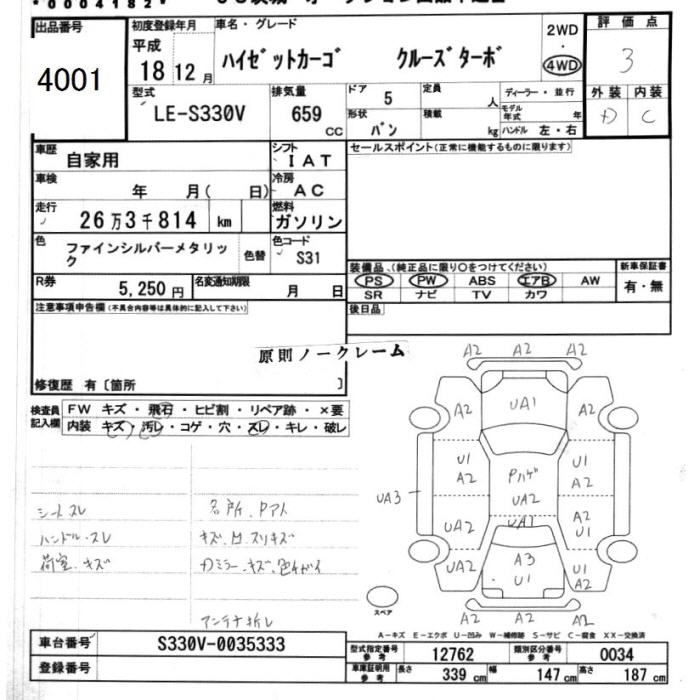 0004182
出品番号
4001
初度登録年月
平成
18 12 月
車名・グレード
ハイゼットカーゴ クルーズターボ
2WD
・
4WD
評価点
3
外装 内装
D C
型式
LE-S330V
排気量
659 cc
ドア 5
形状 バン
定員 人
積載 kg
ディーラー・並行
モデル年式 年
ハンドル 左・右
車歴 自家用
シフト IAT
車検 年 月( 日)
冷房 AC
走行 26万3千814 km
燃料 ガソリン
色 ファインシルバーメタリック
色替
色コード S31
R券 5,250 円
名変通知期限 月 日
セールスポイント(正常に機能するものに限ります)
装備品、(純正品に限り○をつけてください)
PS PW ABS エアB AW
SR ナビ TV カワ
新車保証書
有・無
後日品
注意事項申告欄(不具合内容等は具体的に記入して下さい)
原則ノークレーム
修復歴 有〔箇所 〕
検査員記入欄
FW キズ・飛石・ヒビ割・リペア跡・×要
内装 キズ・汚レ・コゲ・穴・スレ・キレ・破レ
シートスレ
ハンドル・スレ
荷室・キズ
各所、Pアト
キズ、凹、スリキズ
Dミラー、キズ、色チガイ
アンテナ折レ
A2 A2 A2
A2 UA1 A2
U1 A2 Pハゲ U1 A2
UA3 UA2
UA2 UA1 A2 U1
UA2 A3 U1 U1 A2
スペア
A2 A2 A2
A－キズ E－エクボ U－凹み W－補修跡 S－サビ C－腐食 XX－交換済
車台番号 S330V-0035333
登録番号
型式指定番号 参考 12762
類別区分番号 参考 0034
車庫証明用 参考 長さ 339 cm 幅 147 cm 高さ 187 cm